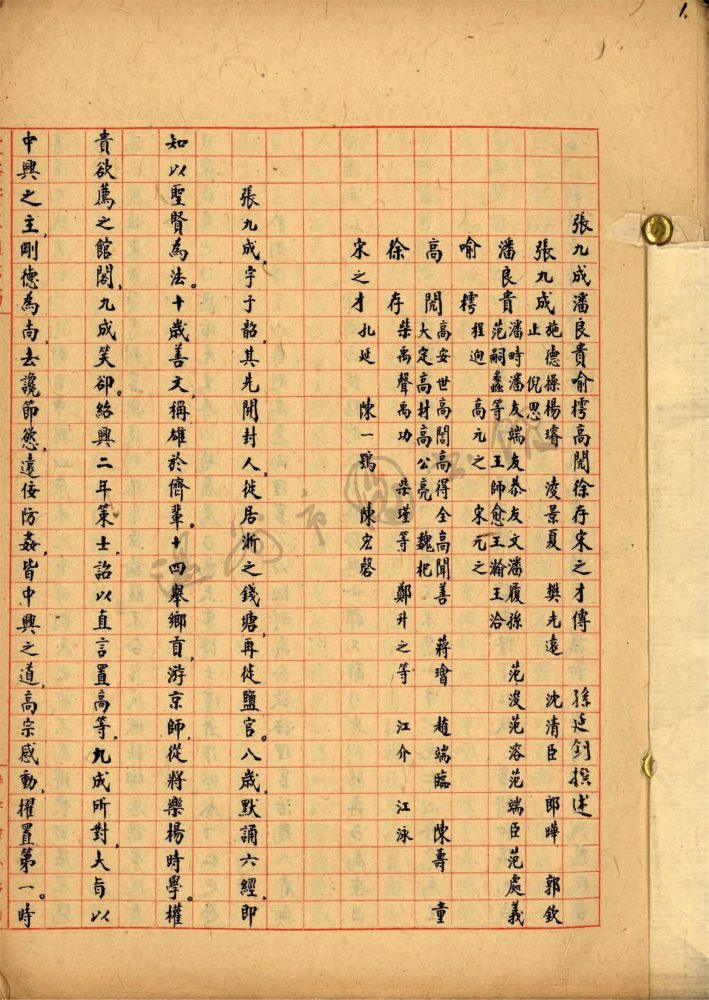 1.
張九成潘良貴喻樗高閌徐存宋之才傳　孫延釗撰述
張九成　施德操楊璿　凌景夏　樊光遠　沈清臣　郎曄　郭欽
止　倪思
潘良貴　潘時潘友端友恭友文潘履孫　范浚范溶范端臣范處義
范嗣蠡等　王師愈王瀚王洽
喻樗　程迥　高元之　宋元之
高閌　高安世高誾高得全高聞善　蔣璯　趙端臨　陳壽　童
大定高材高公亮　魏杞
徐存　柴禹聲禹功　柴瑾等　鄭升之等　江介　江泳
宋之才　孔延　陳一鶚　陳宏磬
張九成，字子韶，其先開封人，徙居浙之錢塘，再徙鹽官。八歲，默誦六經，即
知以聖賢為法。十歲善文，稱雄於儕輩。十四舉鄉貢，游京師，從將樂楊時學。權
貴欲薦之館閣，九成笑卻。紹興二年策士，詔以直言置高等，九成所對，大旨以
中興之主，剛德為尚，去讒節慾，遠佞防姦，皆中興之道，高宗感動，擢置第一。時
溫州市圖書館